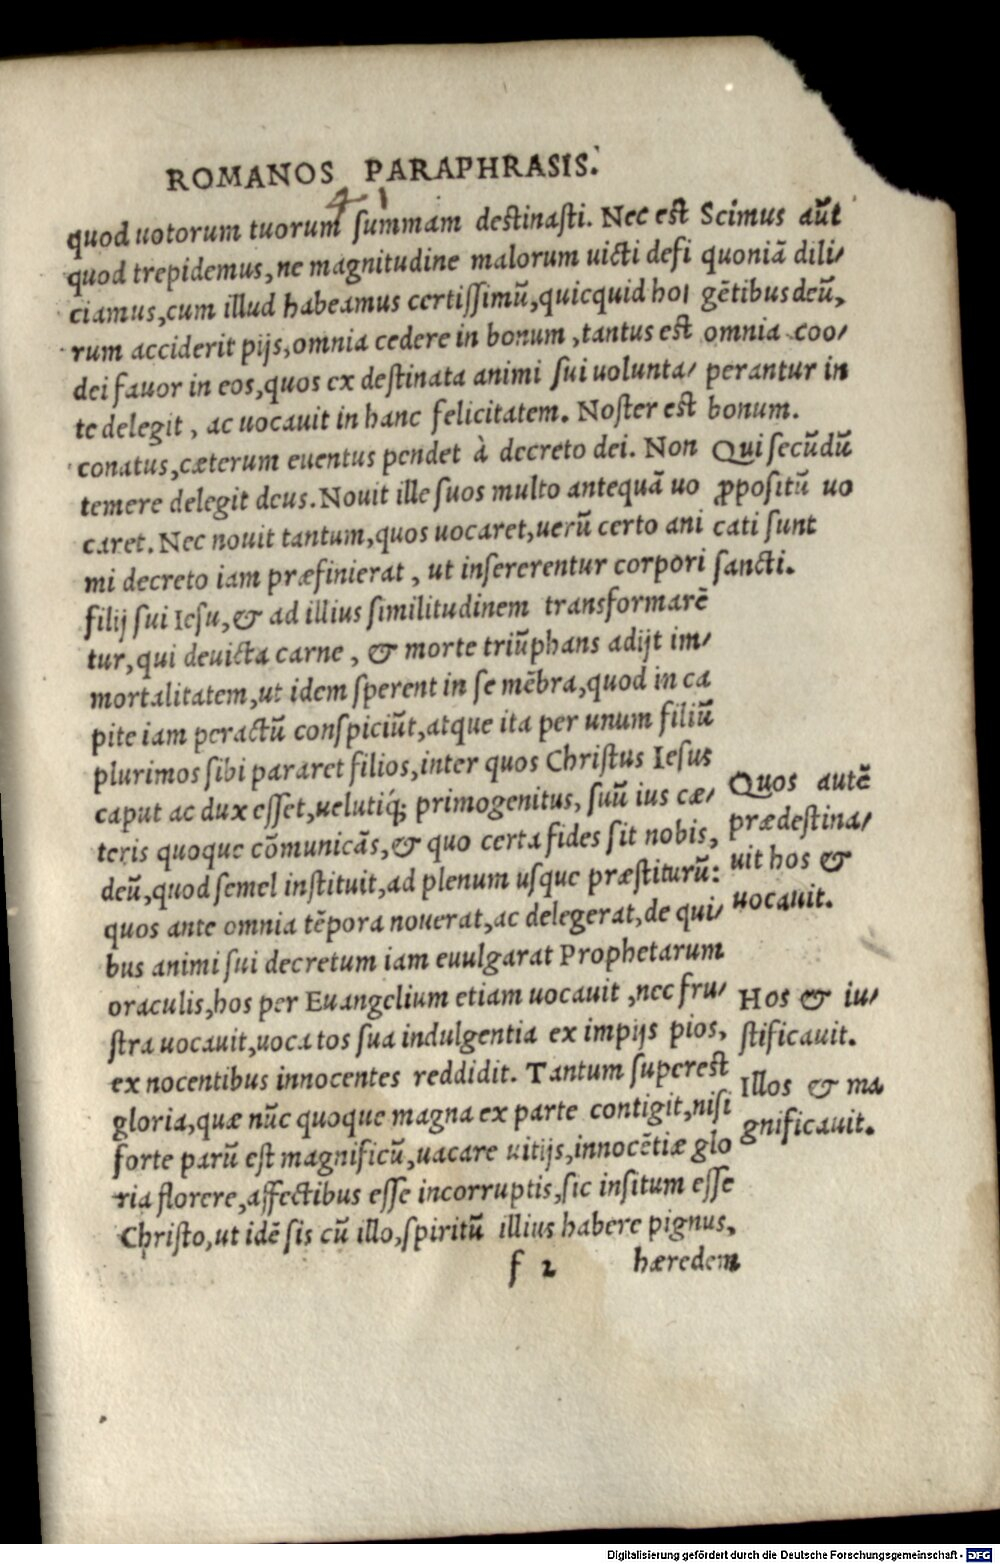 ROMANOS PARAPHRASIS.
41
quod uotorum tuorum summam destinasti. Nec est
quod trepidemus, ne magnitudine malorum uicti defi
ciamus, cum illud habeamus certissimū, quicquid ho
rum acciderit pijs, omnia cedere in bonum, tantus est
dei fauor in eos, quos ex destinata animi sui uolunta/
te delegit, ac uocauit in hanc felicitatem. Noster est
conatus, cæterum euentus pendet à decreto dei. Non
temere delegit deus. Nouit ille suos multo antequā uo
caret. Nec nouit tantum, quos uocaret, uerū certo ani
mi decreto iam præfinierat, ut insererentur corpori
filij sui Iesu, & ad illius similitudinem transformarē
tur, qui deuicta carne, & morte triūphans adijt im/
mortalitatem, ut idem sperent in se mēbra, quod in ca
pite iam peractū conspiciūt, atque ita per unum filiū
plurimos sibi pararet filios, inter quos Christus Iesus
caput ac dux esset, uelutiq́; primogenitus, suū ius cæ/
teris quoque cōmunicās, & quo certa fides sit nobis,
deū, quod semel instituit, ad plenum usque præstiturū:
quos ante omnia tēpora nouerat, ac delegerat, de qui/
bus animi sui decretum iam euulgarat Prophetarum
oraculis, hos per Euangelium etiam uocauit, nec fru/
stra uocauit, uocatos sua indulgentia ex impijs pios,
ex nocentibus innocentes reddidit. Tantum superest
gloria, quæ nūc quoque magna ex parte contigit, nisi
forte parū est magnificū, uacare uitijs, innocētiæ glo
ria florere, affectibus esse incorruptis, sic insitum esse
Christo, ut idē sis cū illo, spiritū illius habere pignus,
f 2 hæredem
Scimus aūt
quoniā dili/
gētibus deū,
omnia coo/
perantur in
bonum.
Qui secūdū
ꝓpositū uo
cati sunt
sancti.
Quos autē
prædestina/
uit hos &
uocauit.
Hos & iu/
stificauit.
Illos & ma
gnificauit.
Digitalisierung gefördert durch die Deutsche Forschungsgemeinschaft - DFG